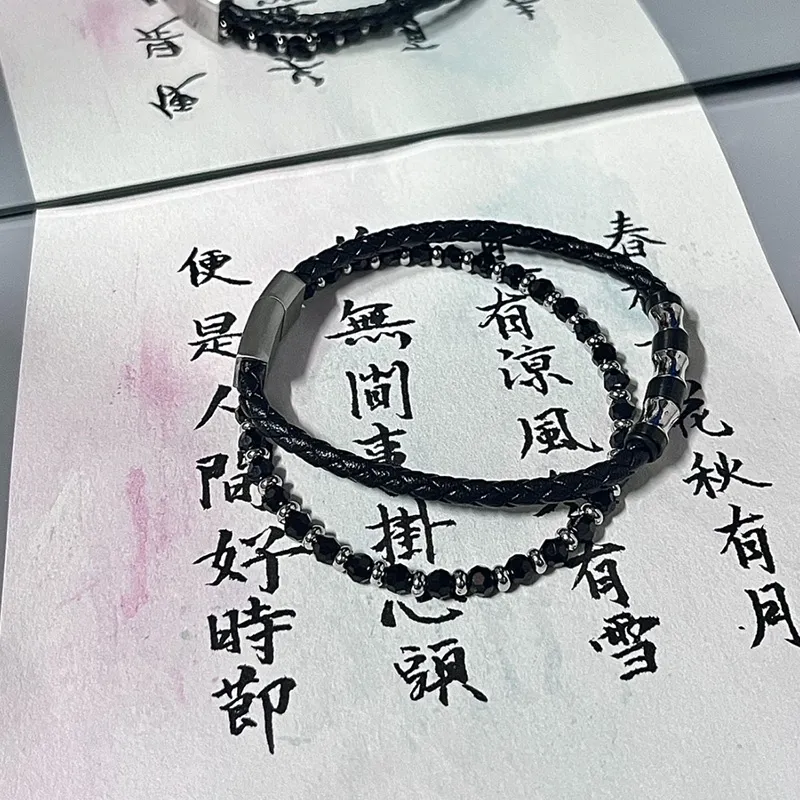 春花秋有月
有涼風有雪
無間事掛心頭
便是人間好時節